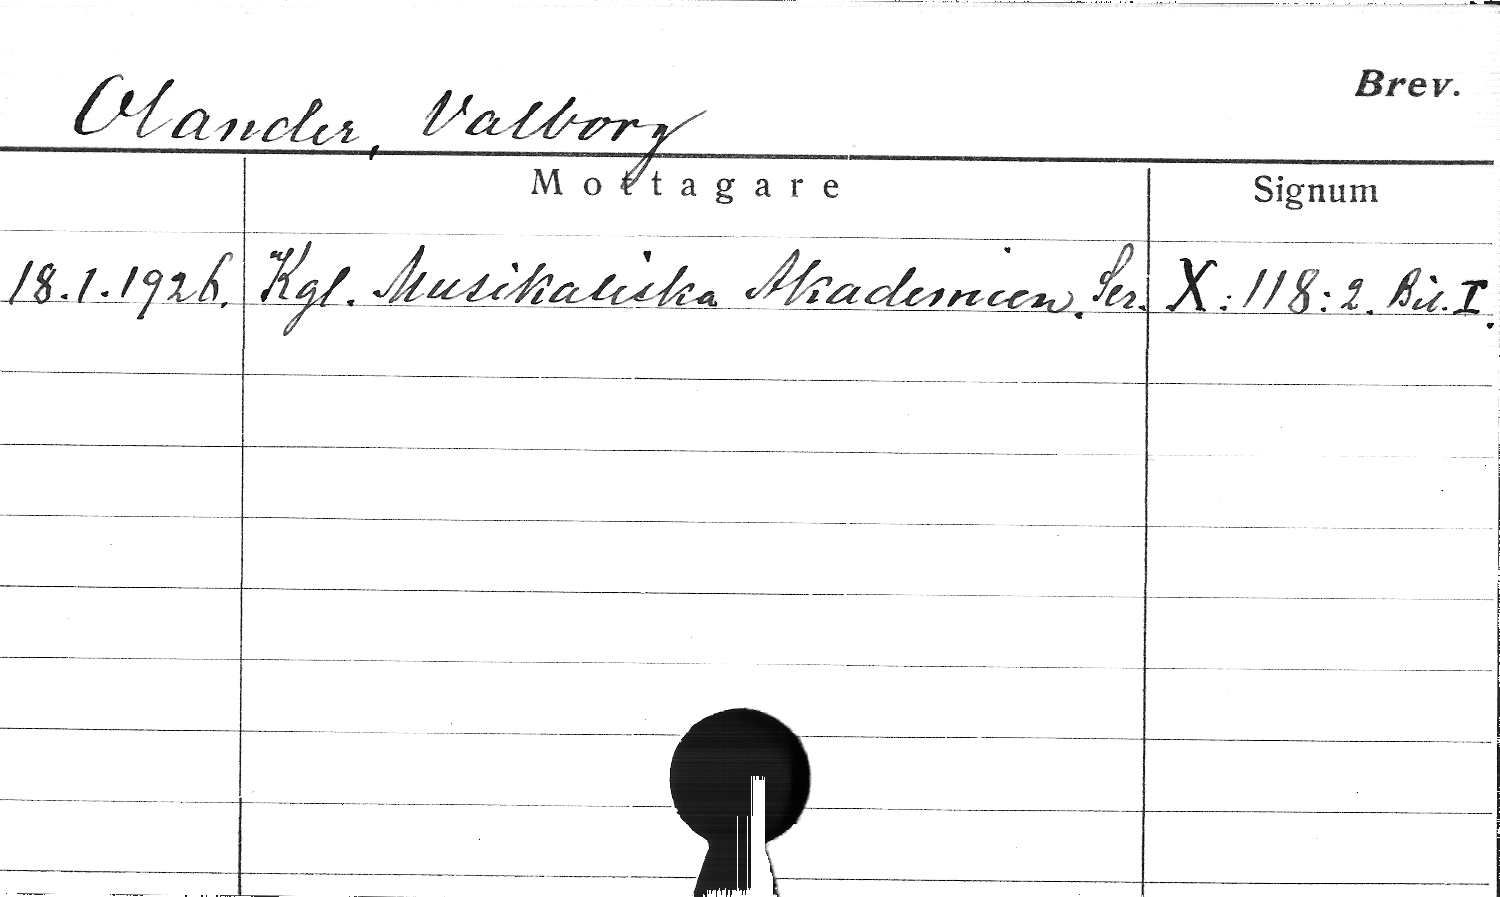 Brev.
Olander, Valborg
Mottagare Signum
18.1.1926. Kgl. Musikaliska Akademien. Ser. X:118:2. Bil. I.